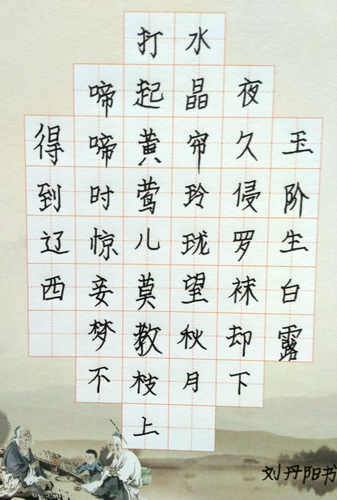 玉阶生白露
夜久侵罗袜却下
水晶帘玲珑望秋月
打起黄莺儿莫教枝上
啼啼时惊妾梦不
得到辽西
刘丹阳书